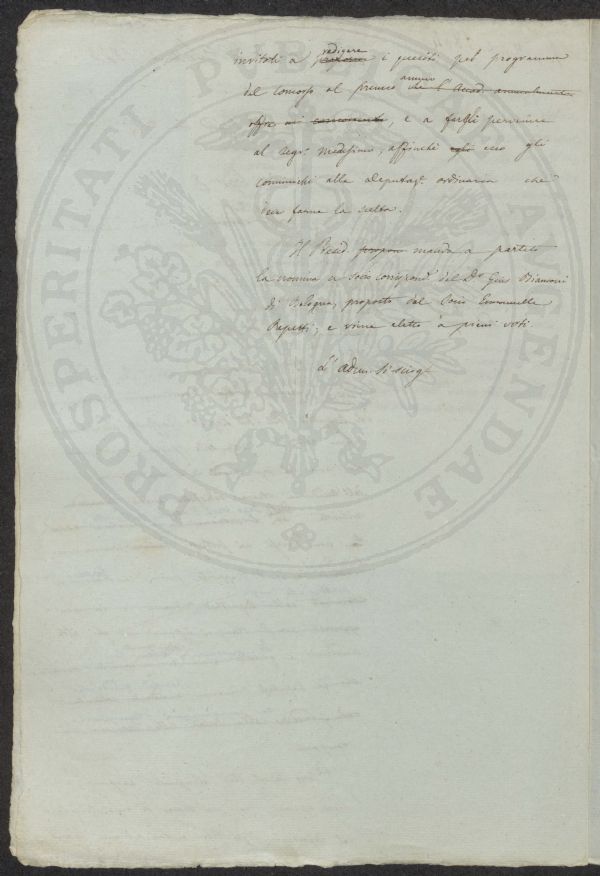 redigere
invitati a proporre i quesiti pel programma
annuo
del concorso al premio che l'Accad. annualmente
offre ai concorrenti, e a fargli pervenire
al Segr. medesimo, affinchè egli esso gli
comunichi alla Deputaz. ordinaria che
dee farne la scelta.
Il Presid. propone manda a partito
la nomina a socio corrispond. del Dr. Gius. Bianconi
di Bologna, proposto dal Socio Emmanuelle
Repetti; e viene eletto a pieni voti.
L'adun. si sciog.
PROSPERITATI PUBLICAE AUGENDAE